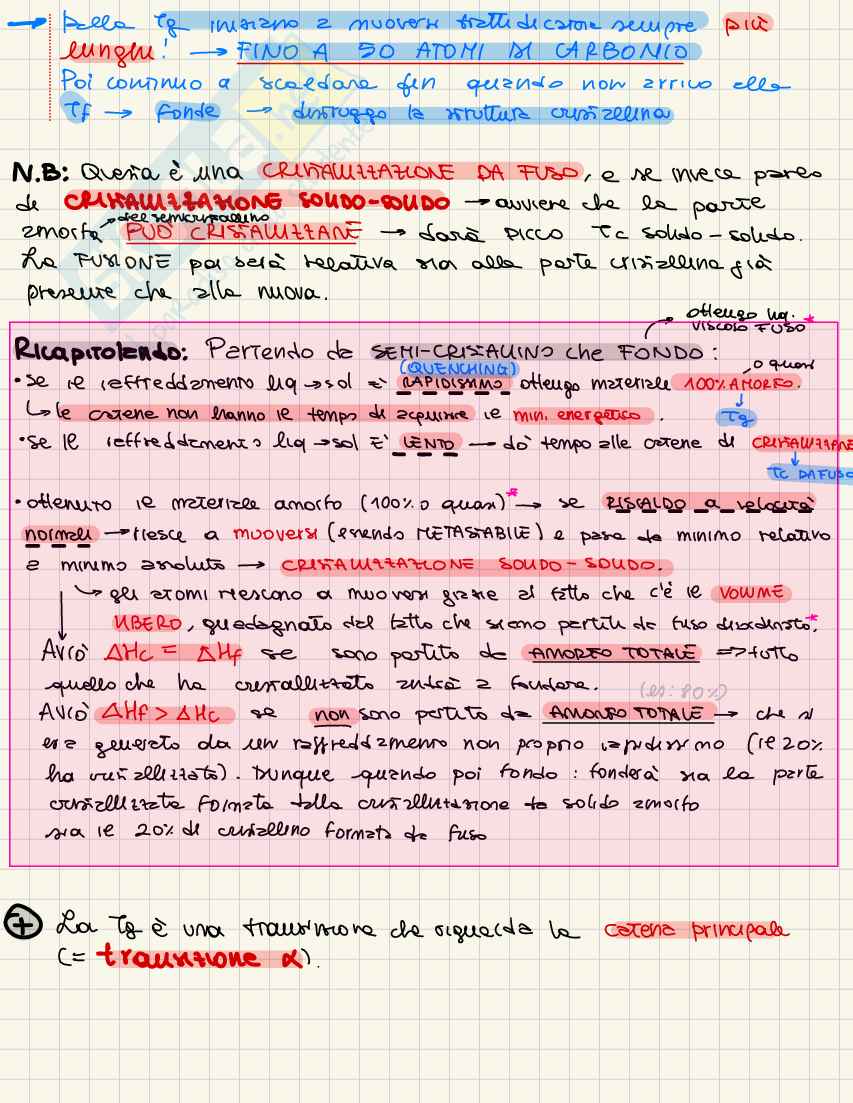 → Dalla Tg iniziano a muoversi tratti di catene sempre più
lunghi! → FINO A 50 ATOMI DI CARBONIO
Poi continuo a scaldare fin quando non arrivo alla
Tf → fonde → distruggo la struttura cristallina
N.B: Questa è una CRISTALLIZZAZIONE DA FUSO, e se invece parlo
di CRISTALLIZZAZIONE SOLIDO-SOLIDO → avviene che la parte
del semicristallino
amorfa PUÒ CRISTALLIZZARE → darà picco Tc solido-solido.
La FUSIONE poi sarà relativa sia alla parte cristallina già
presente che alla nuova.
ottengo liq.
viscoso FUSO*
Ricapitolando: Partendo da SEMI-CRISTALLINO che FONDO:
(QUENCHING) o quasi
• se il raffreddamento liq → sol è RAPIDISSIMO ottengo materiale 100% AMORFO.
↳ le catene non hanno il tempo di acquisire il min. energetico. Tg
• se il raffreddamento liq → sol È LENTO → dò tempo alle catene di CRISTALLIZZARE
Tc DA FUSO
• ottenuto il materiale amorfo (100% o quasi)* → se RISCALDO a velocità
normali → riesce a muoversi (essendo METASTABILE) e passa da minimo relativo
a minimo assoluto → CRISTALLIZZAZIONE SOLIDO-SOLIDO.
↳ gli atomi riescono a muoversi grazie al fatto che c'è il VOLUME
LIBERO, guadagnato dal fatto che siamo partiti da fuso disordinato.*
Avrò ΔHc = ΔHf se sono partito da AMORFO TOTALE => tutto
quello che ha cristallizzato andrà a fondere.
(es: 80%)
Avrò ΔHf > ΔHc se non sono partito da AMORFO TOTALE → che si
era generato da un raffreddamento non proprio rapidissimo (il 20%
ha cristallizzato). Dunque quando poi fondo: fonderà sia la parte
cristallizzata formata dalla cristallizzazione da solido amorfo
sia il 20% di cristallino formato da fuso
+ La Tg è una transizione che riguarda la catena principale
(= transizione α).